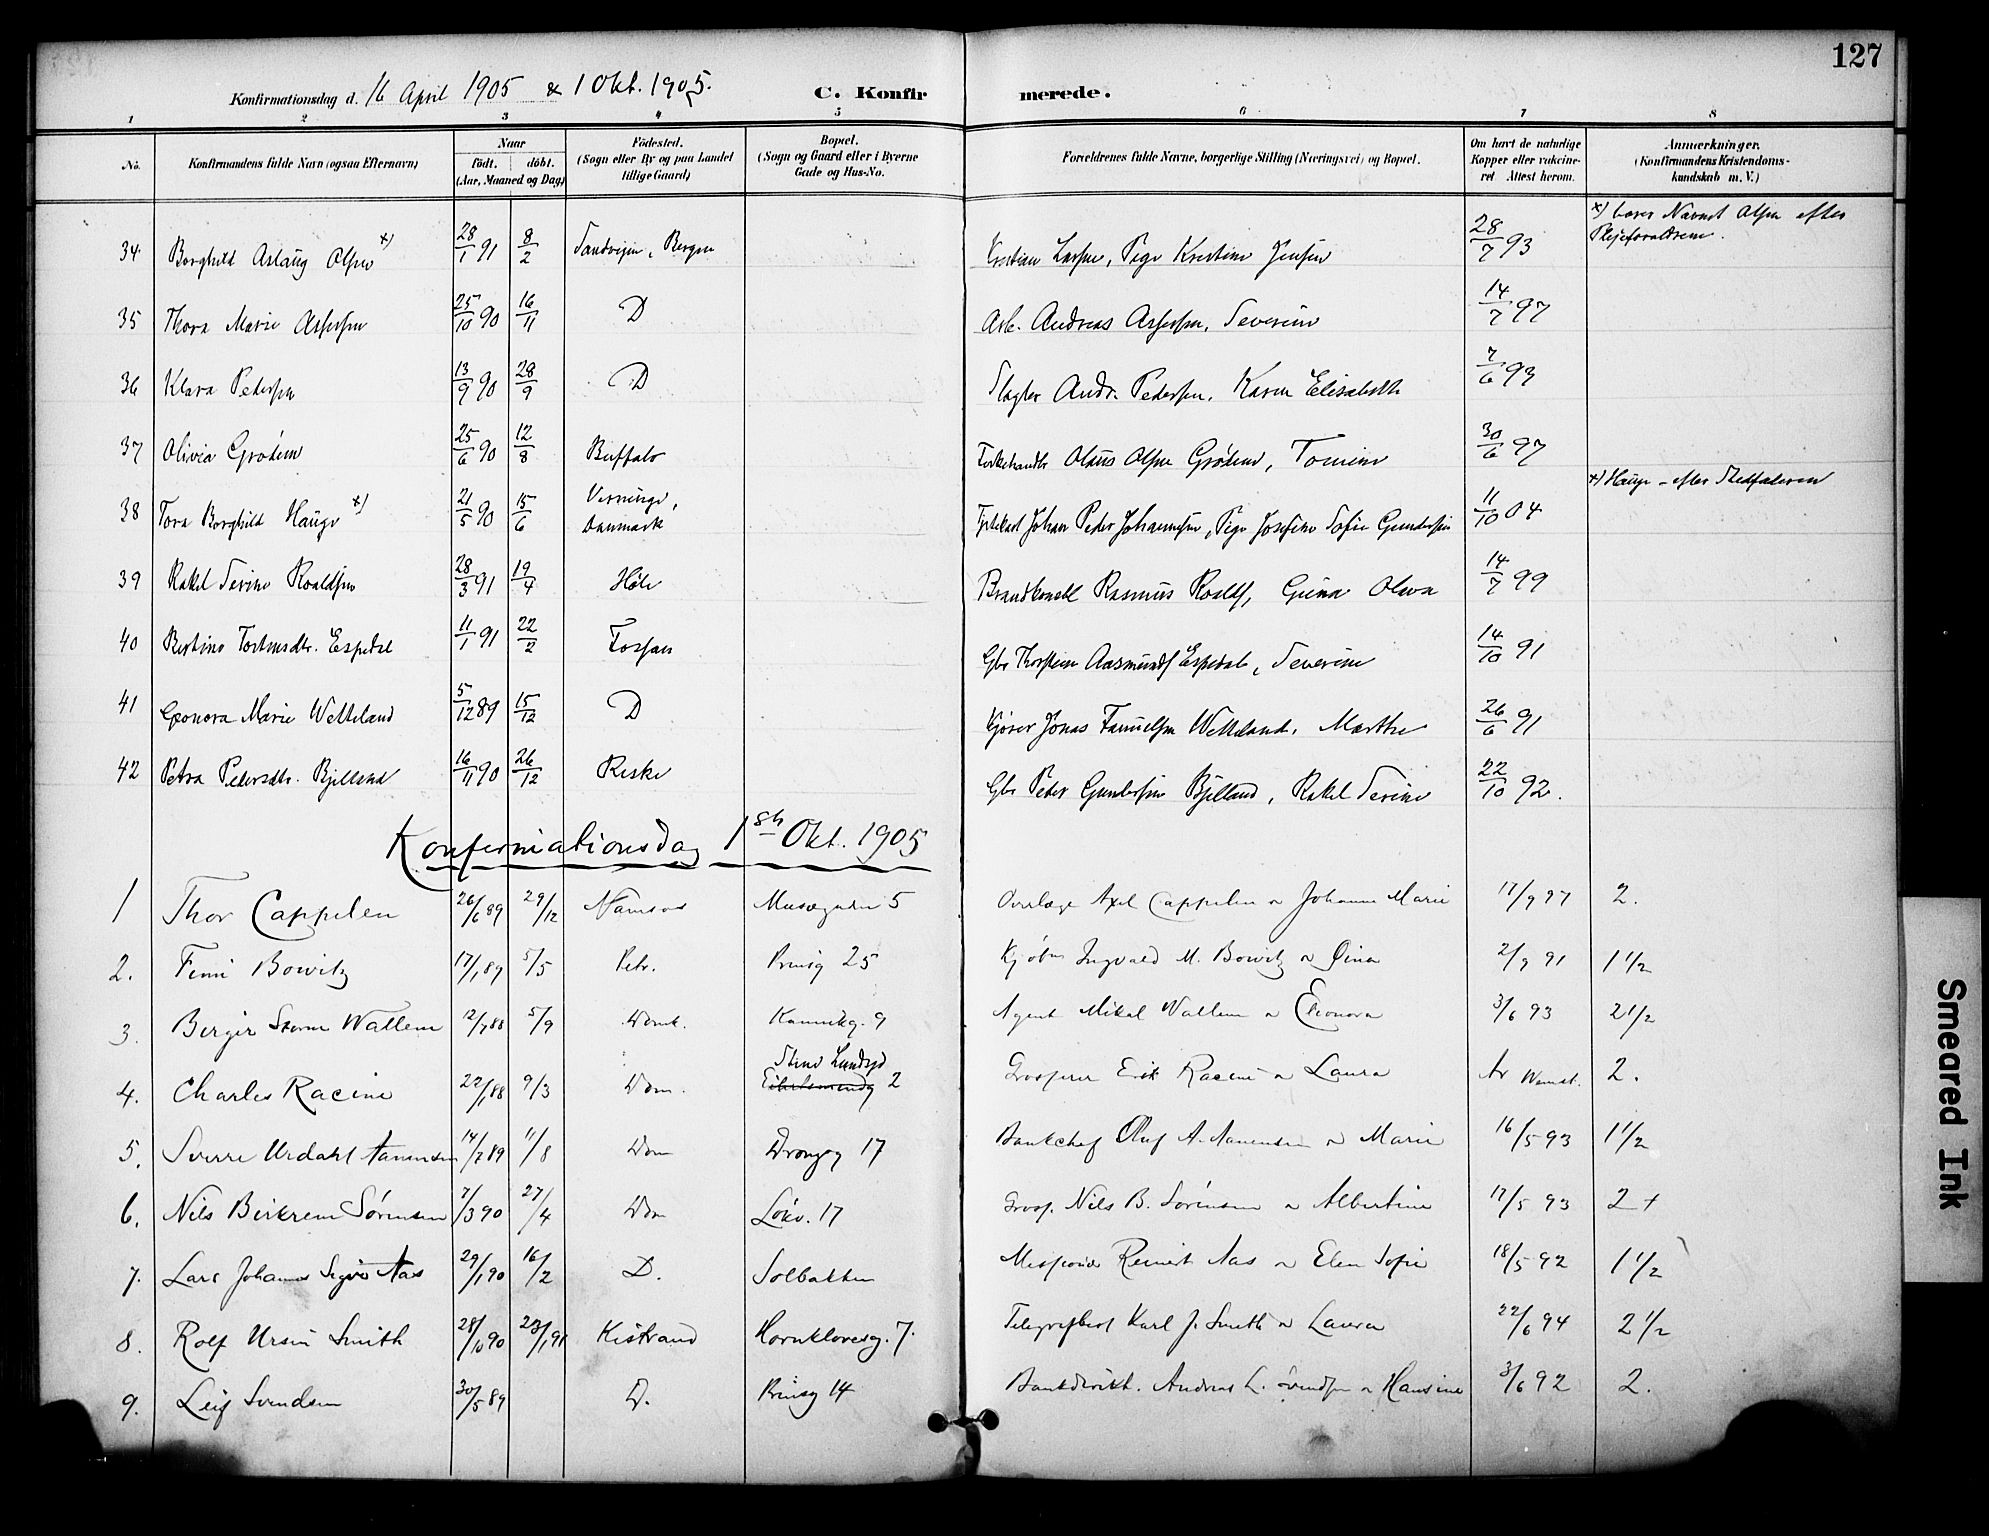 127
Konfirmationsdag d. 16 April 1905 & 1 Okt. 1905. C. Konfir merede.
1 2 3 4 5 6 7 8
No. Konfirmandens fulde Navn (ogsaa Efternavn) Naar födt. döbt. (Aar, Maaned og Dag) Födested. (Sogn eller By og paa Landet tillige Gaard) Bopæl. (Sogn og Gaard eller i Byerne Gade og Hus-No. Forældrenes fulde Navne, borgerlige Stilling (Næringsvei) og Bopæl. Om havt de naturlige Kopper eller vakcineret Attest herom. Anmærkninger. (Konfirmandens Kristendomskundskab m. V.)
34 Borghild Aslaug Olsen x) 28/1 91 8/2 Sandvigen, Bergen Kristian Larsen, Pige Kristine Jensen 28/7 93 x) bærer Navnet Olsen efter Plejeforældrene.
35 Thora Marie Aslefsen 25/10 90 16/11 D Arb. Andreas Aslefsen, Severine 14/7 97
36 Klara Petersen 13/9 90 28/9 D Slagter Andr. Petersen, Karen Elisabeth 7/6 93
37 Olivia Grødem 25/6 90 12/8 Buffalo Olaus Olsen Grødem, Tomine 30/6 97
38 Tora Borghild Hauge x) 21/5 90 15/6 Danmark Johan Peder Johannesen, Pige Josefine Sofie Gundersen 11/10 04 x) Hauge - efter Stedfaderen
39 Rakel Serine Roaldsen 28/3 91 19/4 Høle Brandkonstbl Rasmus Roalds, Guna Olava 14/7 99
40 Bertine Torstensdtr. Espedal 11/1 91 22/2 Fossan Gbr Thorstein Aasmunds Espedal, Severine 14/10 91
41 Eeonora Marie Wetteland 5/12 89 15/12 D Kjører Jonas Samuelsen Wetteland, Marthe 26/6 91
42 Petra Pedersdtr. Bjelland 16/11 90 26/12 Riske Gbr Peder Gundersen Bjelland, Rakel Serine 22/10 92.
Konfirmationsdag 1ste Okt. 1905
1 Thor Cappelen 26/6 89 29/12 Namsos Musægaden 5 Overlæge Axel Cappelen o Johanne Marie 17/9 97 2.
2. Finn Bowitz 17/1 89 5/5 Petr. Prinsg 25 Kjøbm Ingvald M. Bowitz o Dina 2/9 91 1 1/2
3. Birger Storm Wallem 12/7 88 5/9 Domk. Kannikg. 9 Agent Mikal Wallem o Eleonora 3/6 93 2 1/2
4. Charles Racine 22/1 88 9/3 Dom. 2 Grosserer Erik Racine o Laura Ar 2.
5. Sverre Urdahl Aanensen 14/7 89 11/8 Dom Drongg 17 Bankchef Oluf A. Aanensen o Marie 16/5 93 1 1/2
6. Nils Birkrem Sørensen 7/3 90 27/4 Dom Løkv. 17 Gross. Nils B. Sørensen o Albertine 17/5 93 2 +
7. Lars Johannes Sigvo Aas 29/1 90 16/2 D. Solbakken Missionær Reinert Aas o Elen Sofie 18/5 92 1 1/2
8. Rolf Ursin Smith 28/10 90 23/1 91 Kistrand Hornklovesg. 7. Telegrafbest Karl J. Smith o Laura 22/6 94 2 1/2
9. Leif Svendsen 30/5 89 D. Prinsg 14 Bankdirekt. Andreas L. Svendsen o Hansine 3/6 92 2.
Smeared Ink